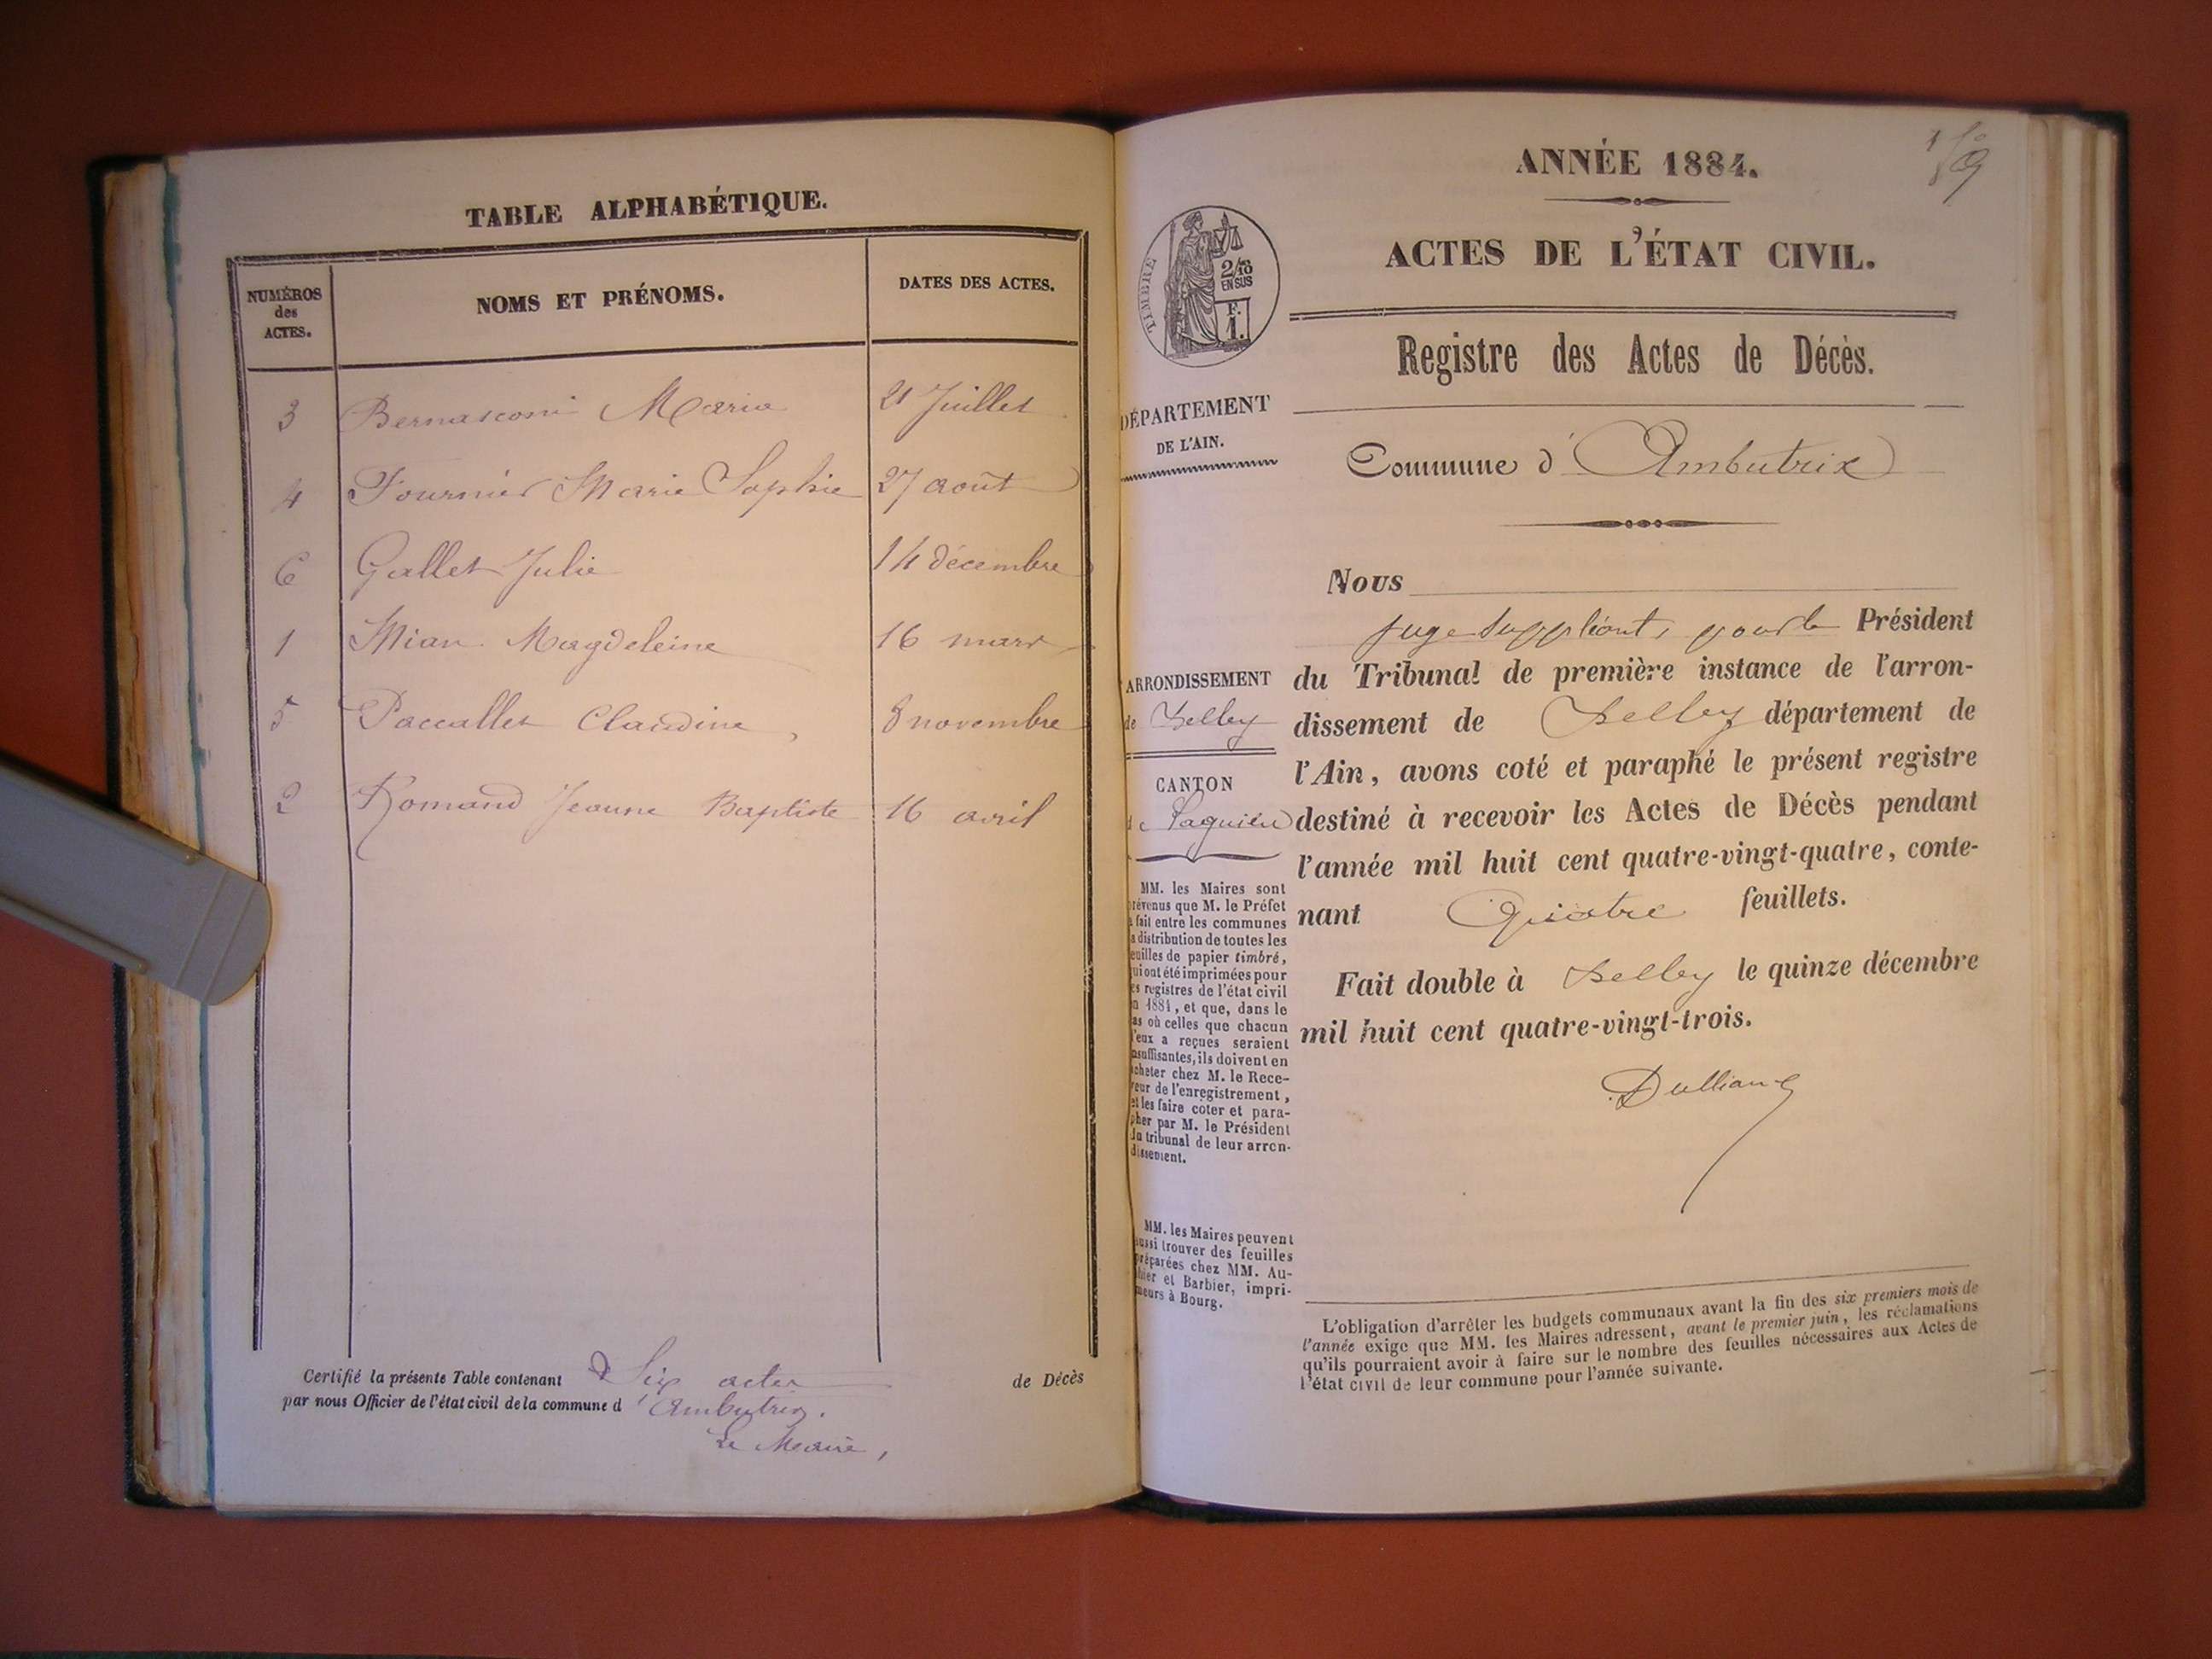 TABLE ALPHABÉTIQUE.
NUMÉROS
des
ACTES.
NOMS ET PRÉNOMS.
DATES DES ACTES.
3 Bernasconi Maria 21 Juillet
4 Fournier Marie Sophie 27 août
6 Gallet Julie 14 décembre
1 Mian Magdeleine 16 mars
5 Paccallet Claudine, 8 novembre
2 Romand Jeanne Baptiste 16 avril
Certifié la présente Table contenant Six actes de Décès
par nous Officier de l'état civil de la commune d'Ambutrix.
Le Maire,
ANNÉE 1884.
ACTES DE L'ÉTAT CIVIL.
TIMBRE
2/10
EN SUS
F.
1.
Registre des Actes de Décès.
DÉPARTEMENT
DE L'AIN.
Commune d'Ambutrix
Nous
juge suppléant, pour le Président
du Tribunal de première instance de l'arron-
dissement de Belley département de
l'Ain, avons coté et paraphé le présent registre
destiné à recevoir les Actes de Décès pendant
l'année mil huit cent quatre-vingt-quatre, conte-
nant Quatre feuillets.
Fait double à Belley le quinze décembre
mil huit cent quatre-vingt-trois.
ARRONDISSEMENT
de Belley
CANTON
de Lagnieu
MM. les Maires sont
prévenus que M. le Préfet
a fait entre les communes
la distribution de toutes les
feuilles de papier timbré,
qui ont été imprimées pour
les registres de l'état civil
en 1884, et que, dans le
cas où celles que chacun
d'eux a reçues seraient
insuffisantes, ils doivent en
acheter chez M. le Rece-
veur de l'enregistrement,
et les faire coter et para-
pher par M. le Président
du tribunal de leur arron-
dissement.
MM. les Maires peuvent
aussi trouver des feuilles
préparées chez MM. Au-
thier et Barbier, impri-
meurs à Bourg.
L'obligation d'arrêter les budgets communaux avant la fin des six premiers mois de
l'année exige que MM. les Maires adressent, avant le premier juin, les réclamations
qu'ils pourraient avoir à faire sur le nombre des feuilles nécessaires aux Actes de
l'état civil de leur commune pour l'année suivante.